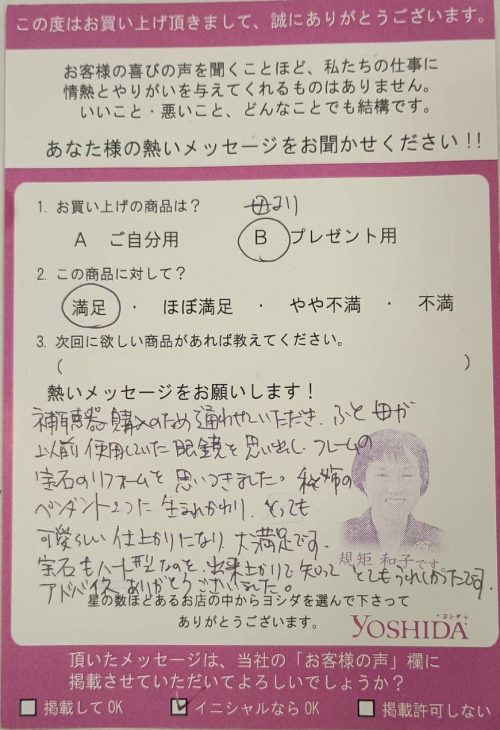 この度はお買い上げ頂きまして、誠にありがとうございます。
お客様の喜びの声を聞くことほど、私たちの仕事に
情熱とやりがいを与えてくれるものはありません。
いいこと・悪いこと、どんなことでも結構です。
あなた様の熱いメッセージをお聞かせください!!
1. お買い上げの商品は? 母より
A ご自分用 B プレゼント用
2. この商品に対して?
満足 ・ ほぼ満足 ・ やや不満 ・ 不満
3. 次回に欲しい商品があれば教えてください。
( )
熱いメッセージをお願いします!
補聴器購入のため通わせていただき、ふと母が
以前使用していた眼鏡を思い出し、フレームの
宝石のリフォームを思いつきました。私と姉の
ペンダント2つに生まれかわり、とっても
可愛らしい仕上がりになり大満足です。
宝石もハート型なのを、出来上がりで知って とてもうれしかったです。
アドバイス ありがとうございました。
規矩 和子です。
星の数ほどあるお店の中からヨシダを選んで下さって
ありがとうございます。
ヨシダ
YOSHIDA
頂いたメッセージは、当社の「お客様の声」欄に
掲載させていただいてよろしいでしょうか?
掲載してOK イニシャルならOK 掲載許可しない